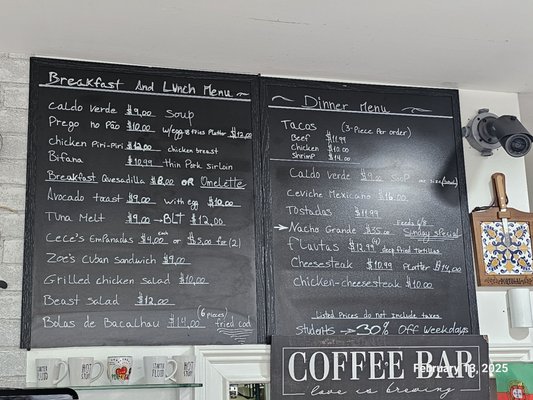 Breakfast And Lunch Menu
Caldo verde $9.00 Soup
Prego no Pão $10.00 w/egg & fries Platter $12.00
chicken Piri-Piri $12.00 chicken breast
Bifana $10.99 thin Pork sirloin
Breakfast Quesadilla $8.00 OR Omelette
Avocado toast $9.00 with egg $10.00
Tuna Melt $9.00 → BLT $12.00
Cece's Empanadas $4.00 each or $5.00 for (2)
Zoe's Cuban Sandwich $9.00
Grilled chicken salad $10.00
Beast salad $12.00
Bolas de Bacalhau $14.00 (6 pieces) fried cod
Dinner Menu
Tacos (3-Piece Per order)
Beef $11.99
Chicken $12.00
Shrimp $14.00
Caldo verde $9.00 Soup
Ceviche Mexicano $16.00
Tostadas $11.99
→ Nacho Grande $35.00 Feeds 6/8 Sunday special
Flautas $12.99 (4) deep fried Tortillas
Cheesesteak $10.99 Platter $14.00
Chicken-cheesesteak $10.00
Listed Prices do not include taxes
Students → 30% Off Weekdays
COFFEE BAR
love is brewing
February 13, 2025